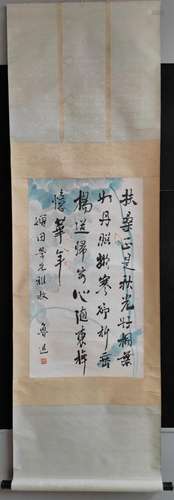 扶桑正是秋光好楓葉
如丹照嫩寒却折垂
楊送歸客心隨東棹
憶華年
增田學兄雅教
魯迅